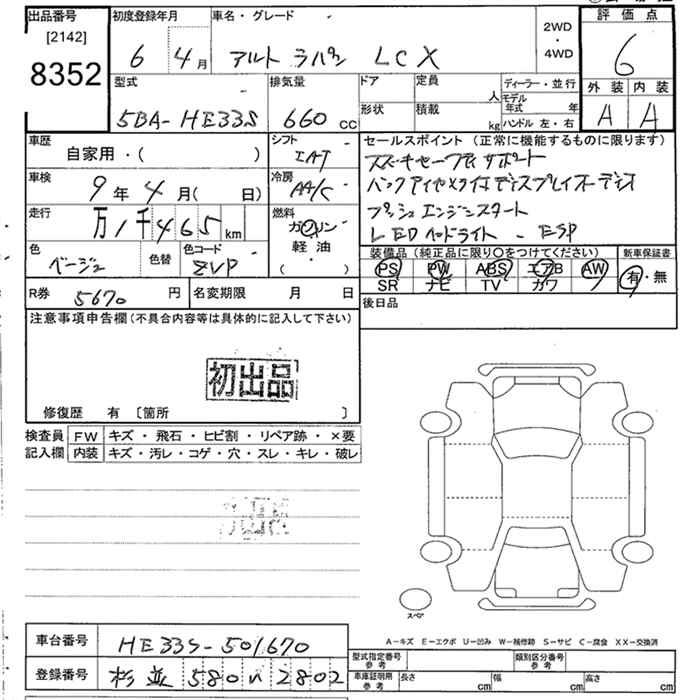 出品番号
[2142]
8352
初度登録年月
6 4月
車名・グレード
アルト ラパン LCX
2WD
・
4WD
評価点
6
型式
5BA-HE33S
排気量
660 cc
ドア
定員
人
形状
積載
kg
ディーラー・並行
モデル年式 年
ハンドル 左・右
外装 内装
A A
車歴
自家用・( )
シフト
IAT
セールスポイント (正常に機能するものに限ります)
スズキセーフティサポート
バックアイカメラ付ディスプレイオーディオ
プッシュエンジンスタート
LEDヘッドライト - ESP
車検
9年4月( 日)
冷房
AA/C
走行
万1千465km
燃料
ガソリン
軽油・
( ・ )
色
ベージュ
色替
色コード
ZVP
装備品(純正品に限り○をつけてください)
PS PW ABS エアB AW
SR ナビ TV カワ
新車保証書
有・無
R券 5670円
名変期限 月 日
後日品
注意事項申告欄(不具合内容等は具体的に記入して下さい)
初出品
修復歴 有 〔箇所 〕
検査員記入欄
FW キズ・飛石・ヒビ割・リペア跡・×要
内装 キズ・汚レ・コゲ・穴・スレ・キレ・破レ
スペア
A－キズ E－エクボ U－凹み W－補修跡 S－サビ C－腐食 XX－交換済
車台番号 HE33S-501670
登録番号 杉並 580 い 2802
型式指定番号
参考
類別区分番号
参考
車庫証明用
参考
長さ cm
幅 cm
高さ cm